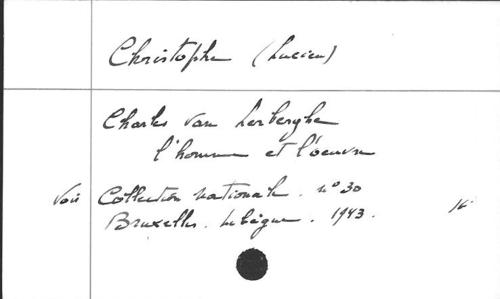 Christophe (Lucien)
Charles van Lerberghe
l'homme et l'oeuvre
Voir Collection Nationale. n° 30
Bruxelles. Lebègue. 1943.